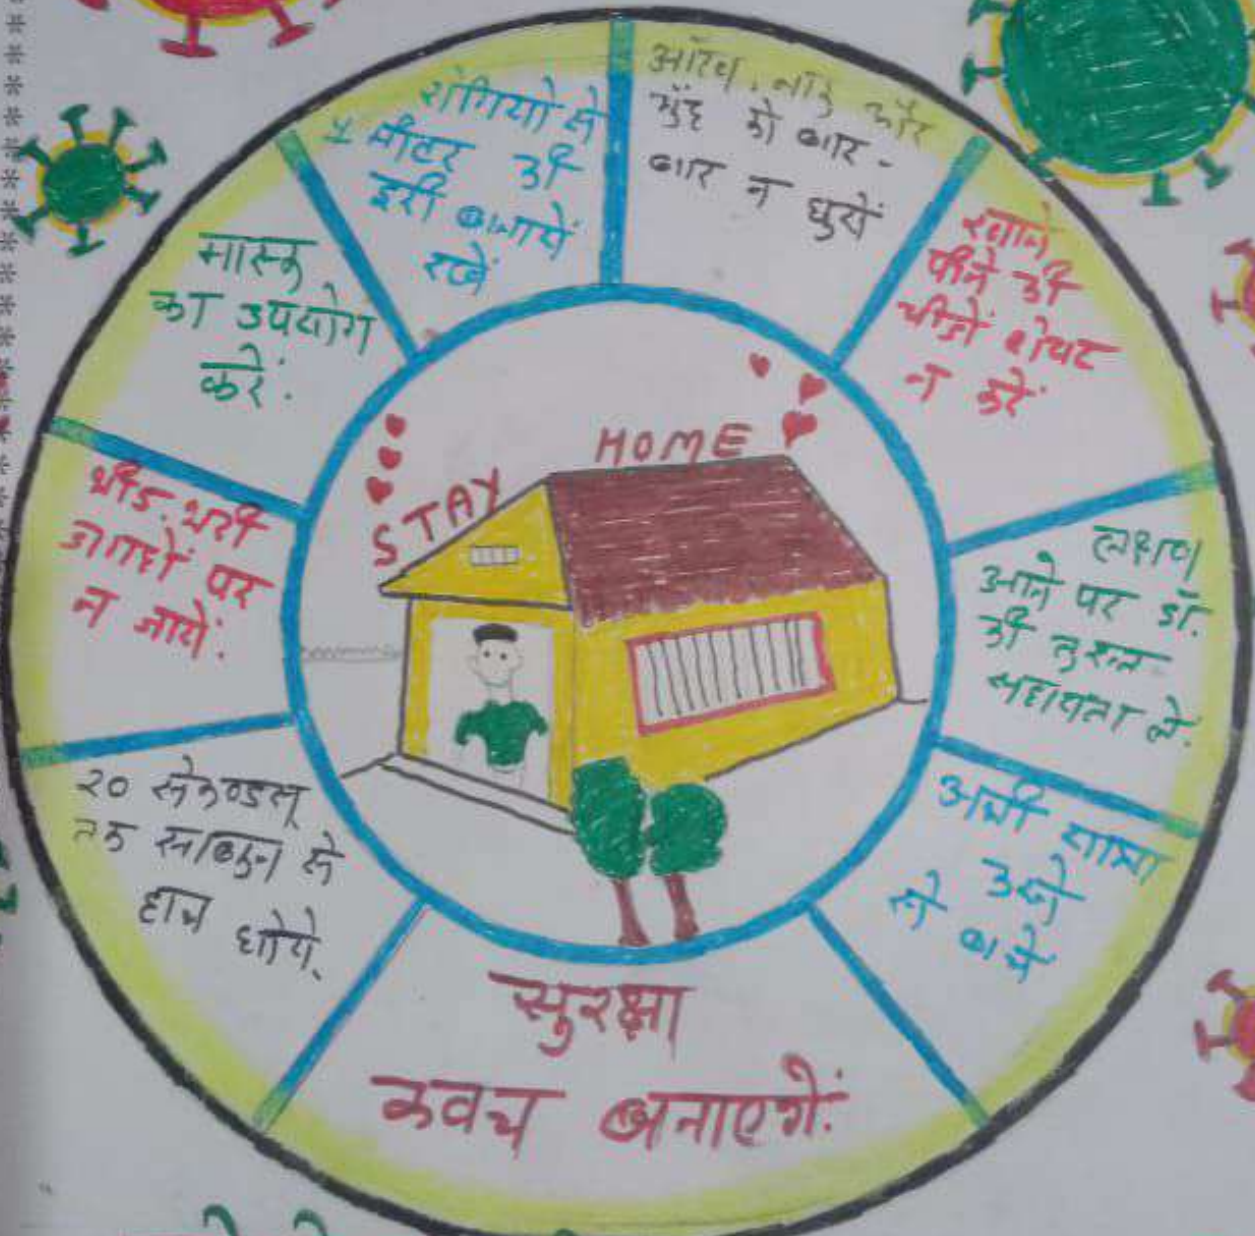 आँख, नाक और
मुँह को बार-
बार न छुयें
खाने
पीने की
चीजें शेयर
न करें
लक्षण
आने पर डॉ.
की तुरन्त
सहायता लें.
अभी यात्रा
करने
से बचें
सुरक्षा
कवच बनाएगें.
२० सेकेण्डस्
तक साबुन से
हाथ धोये.
भीड़ भरी
जगहों पर
न जायें.
मास्क
का उपयोग
करें.
रोगियो से
मीटर की
दूरी बनायें
रखें
STAY HOME